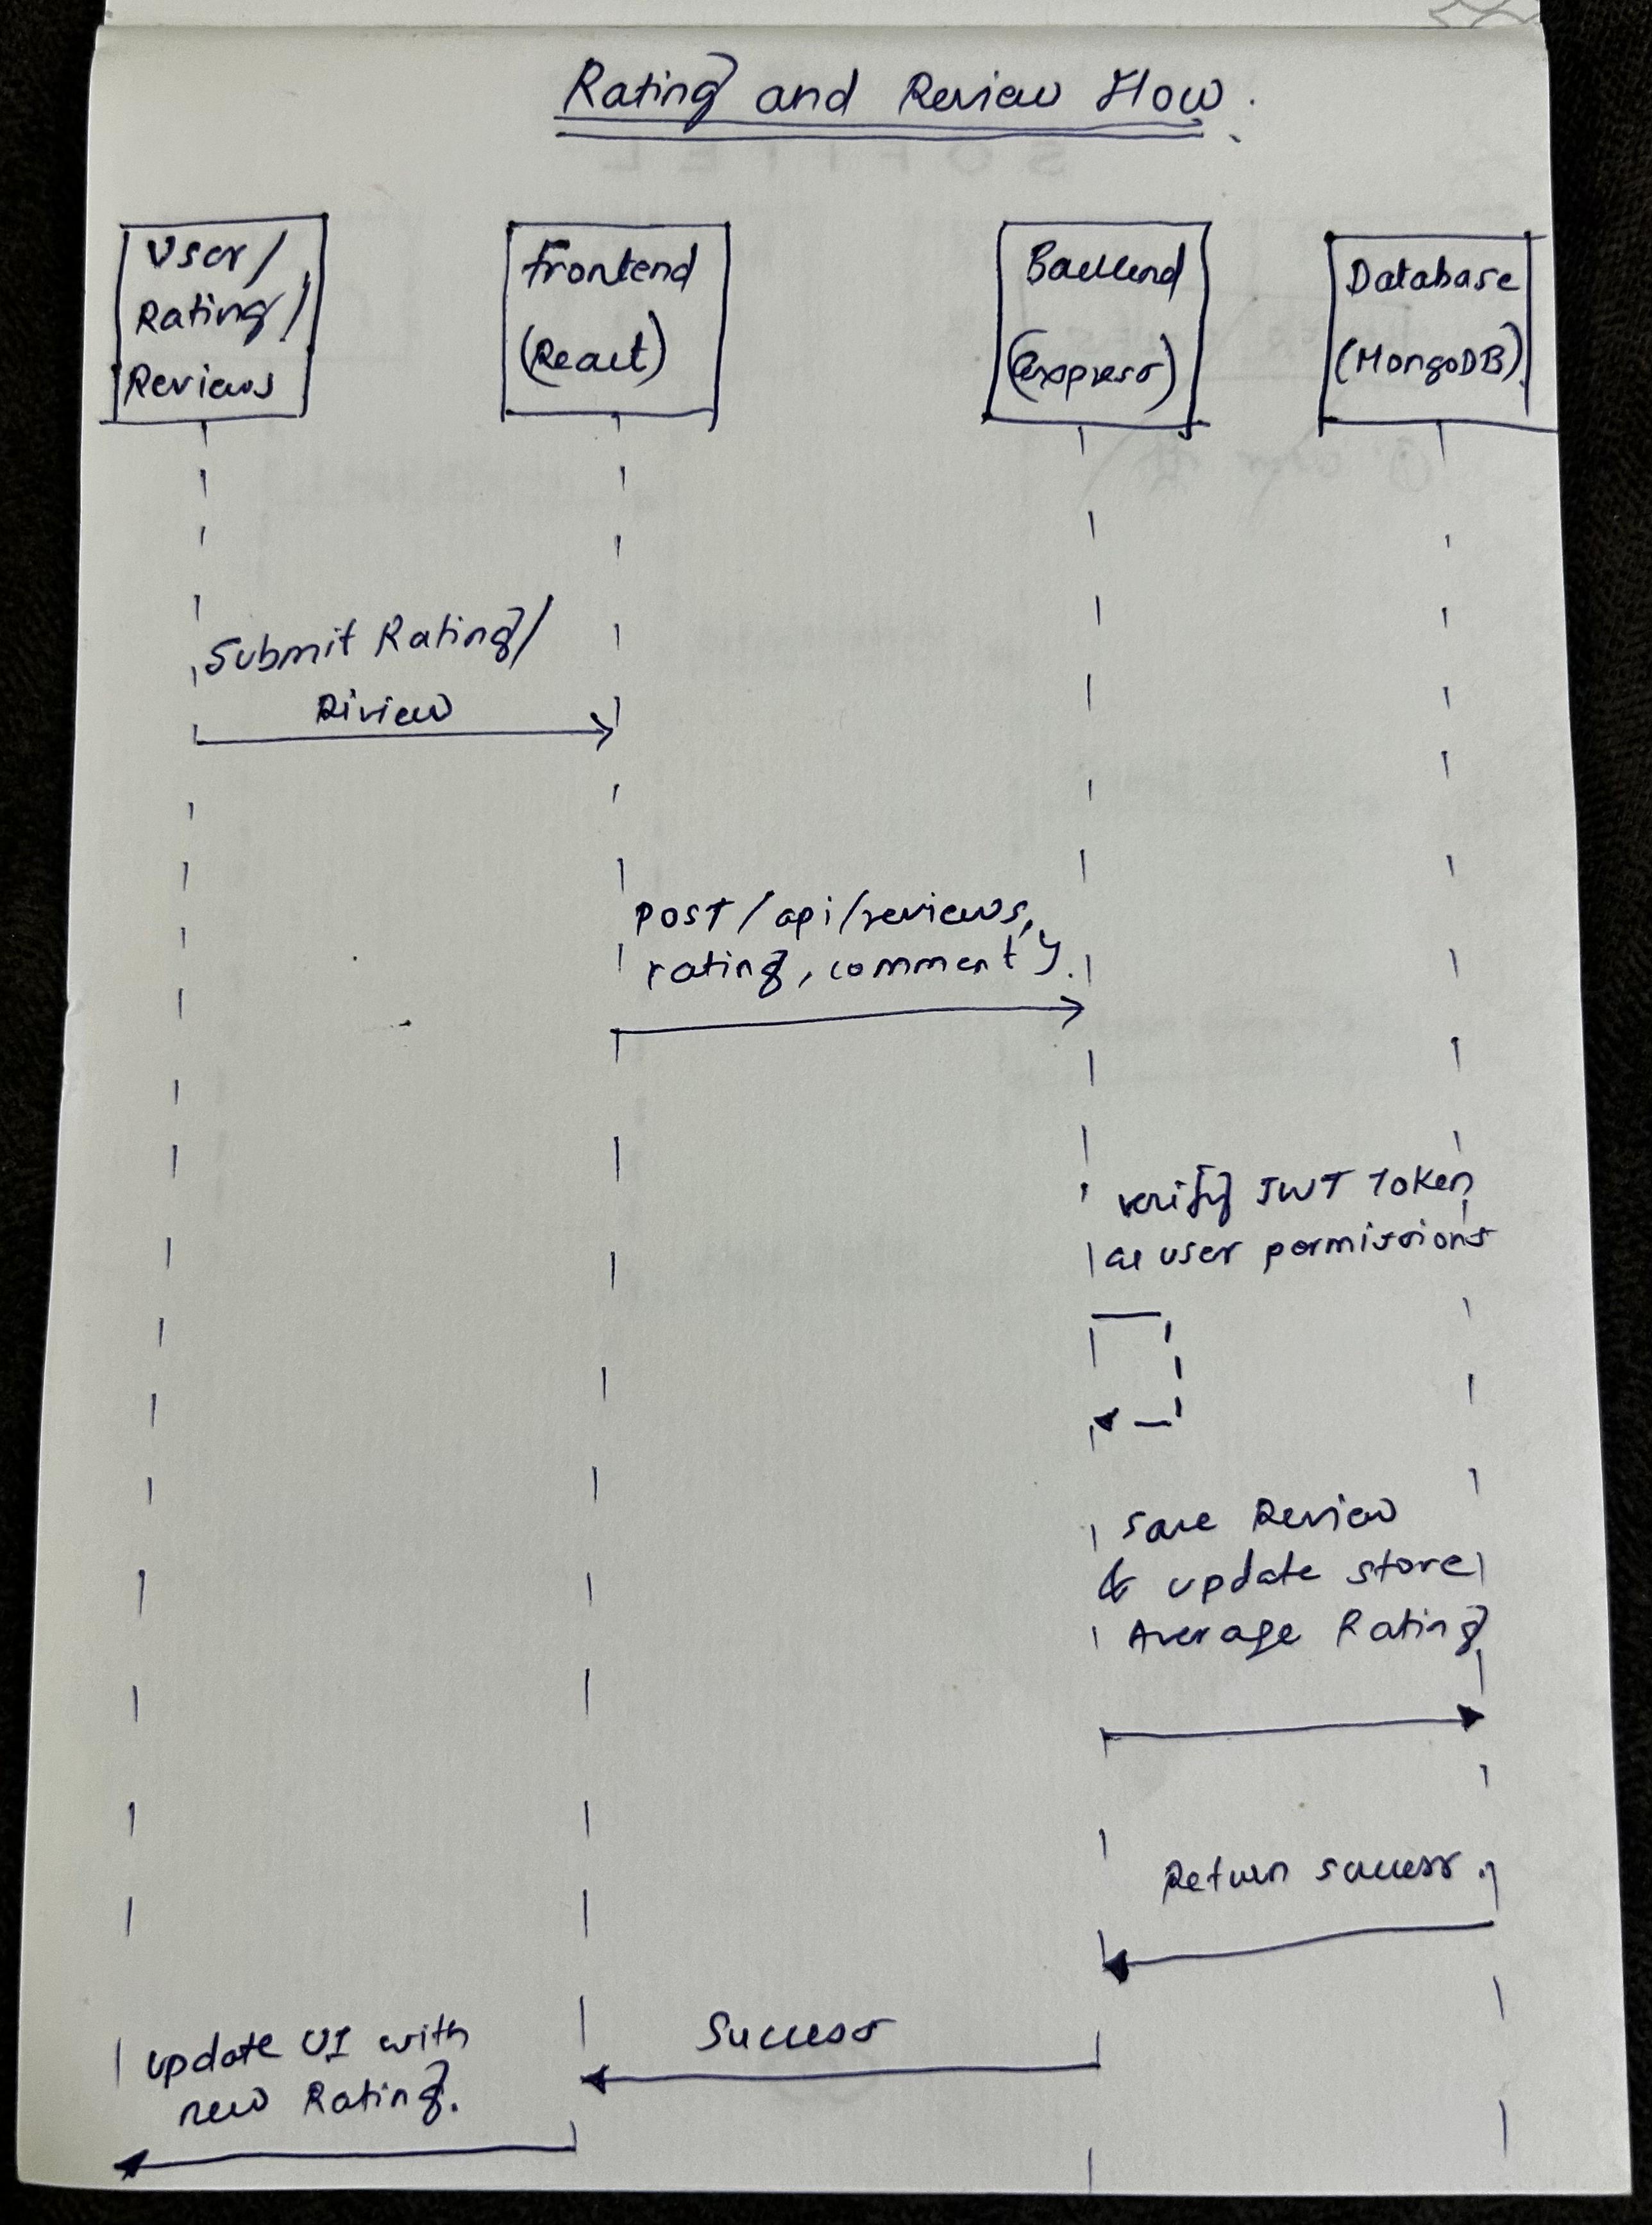 Rating and Review Flow.
User/
Rating/
Reviews
Frontend
(React)
Backend
(express)
Database
(MongoDB)
Submit Rating/
Riview
POST/api/reviews,
rating, comment}.
verify JWT Token
user permissions
Save Review
& update store
Average Rating
Return success.
Success
update UI with
new Rating.